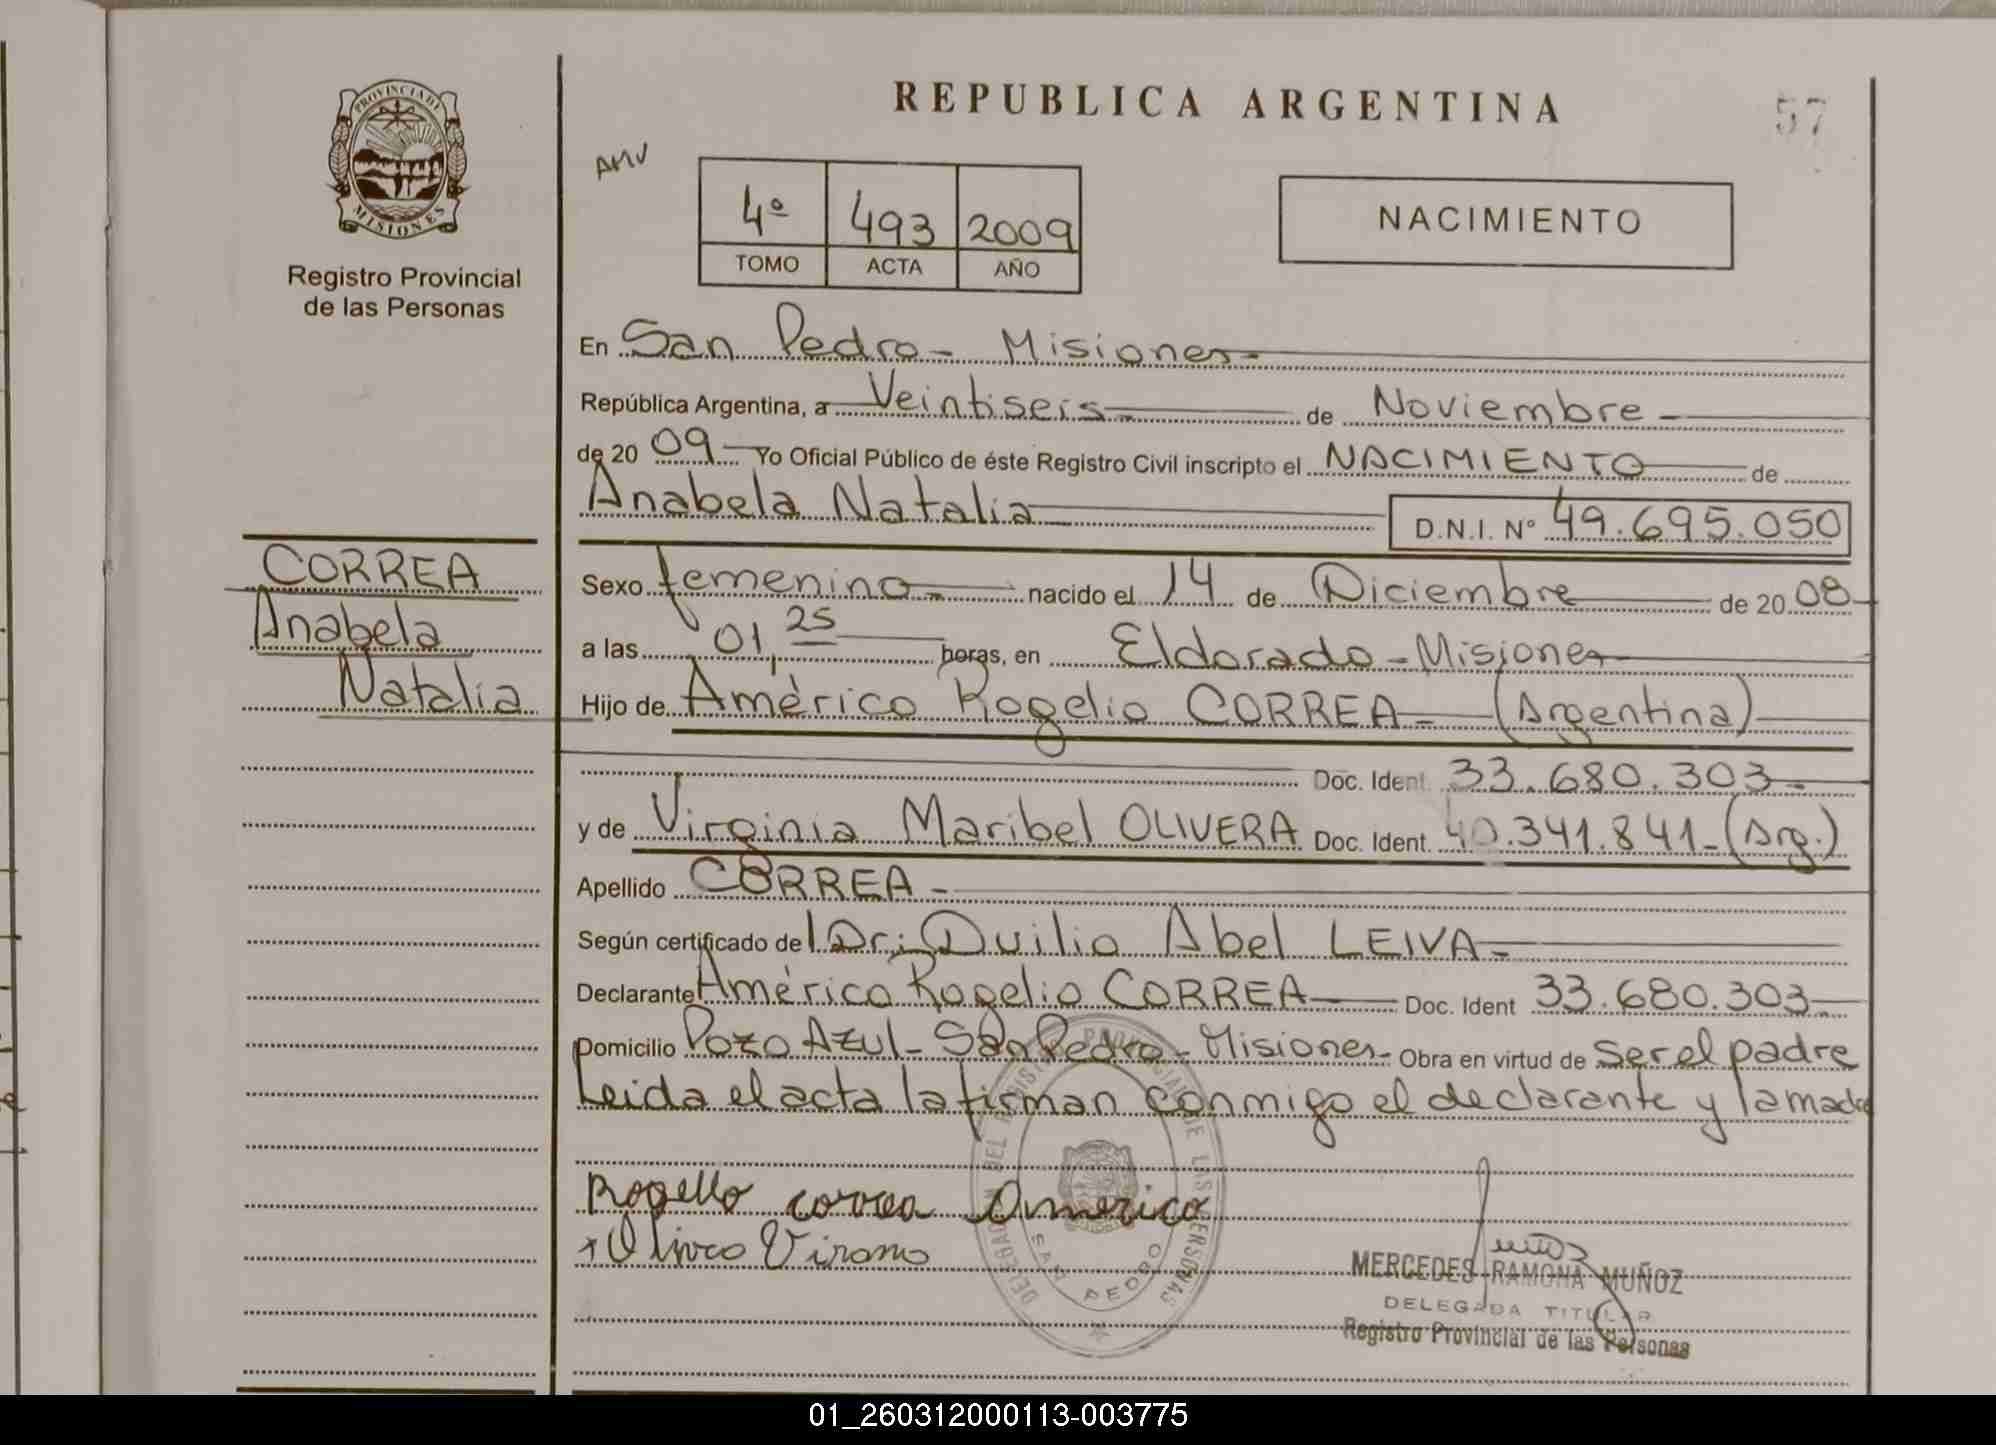 PROVINCIA DE
MISIONES
Registro Provincial
de las Personas
REPUBLICA ARGENTINA
57
AMV
4º 493 2009
TOMO ACTA AÑO
NACIMIENTO
En San Pedro - Misiones -
República Argentina, a Veintiseis - de Noviembre -
de 20 09 Yo Oficial Público de éste Registro Civil inscripto el NACIMIENTO de
Anabela Natalia D.N.I. Nº 49.695.050
CORREA
Anabela
Natalia
Sexo femenino - nacido el 14 de Diciembre de 20 08
a las 01,25 horas, en Eldorado - Misiones
Hijo de Américo Rogelio CORREA - (Argentina)
Doc. Ident. 33.680.303 -
y de Virginia Maribel OLIVERA Doc. Ident. 40.341.841 - (Arg.)
Apellido CORREA -
Según certificado del Dr: Duilio Abel LEIVA -
Declarante Américo Rogelio CORREA Doc. Ident 33.680.303 -
Domicilio Pozo Azul - San Pedro - Misiones - Obra en virtud de ser el padre
Leida el acta la firman conmigo el declarante y la madre
Rogelio correa Americo
DELEGACION DEL REGISTRO PROVINCIAL DE LAS PERSONAS
SAN PEDRO
MERCEDES RAMONA MUÑOZ
DELEGADA TITULAR
Registro Provincial de las Personas
01_260312000113-003775